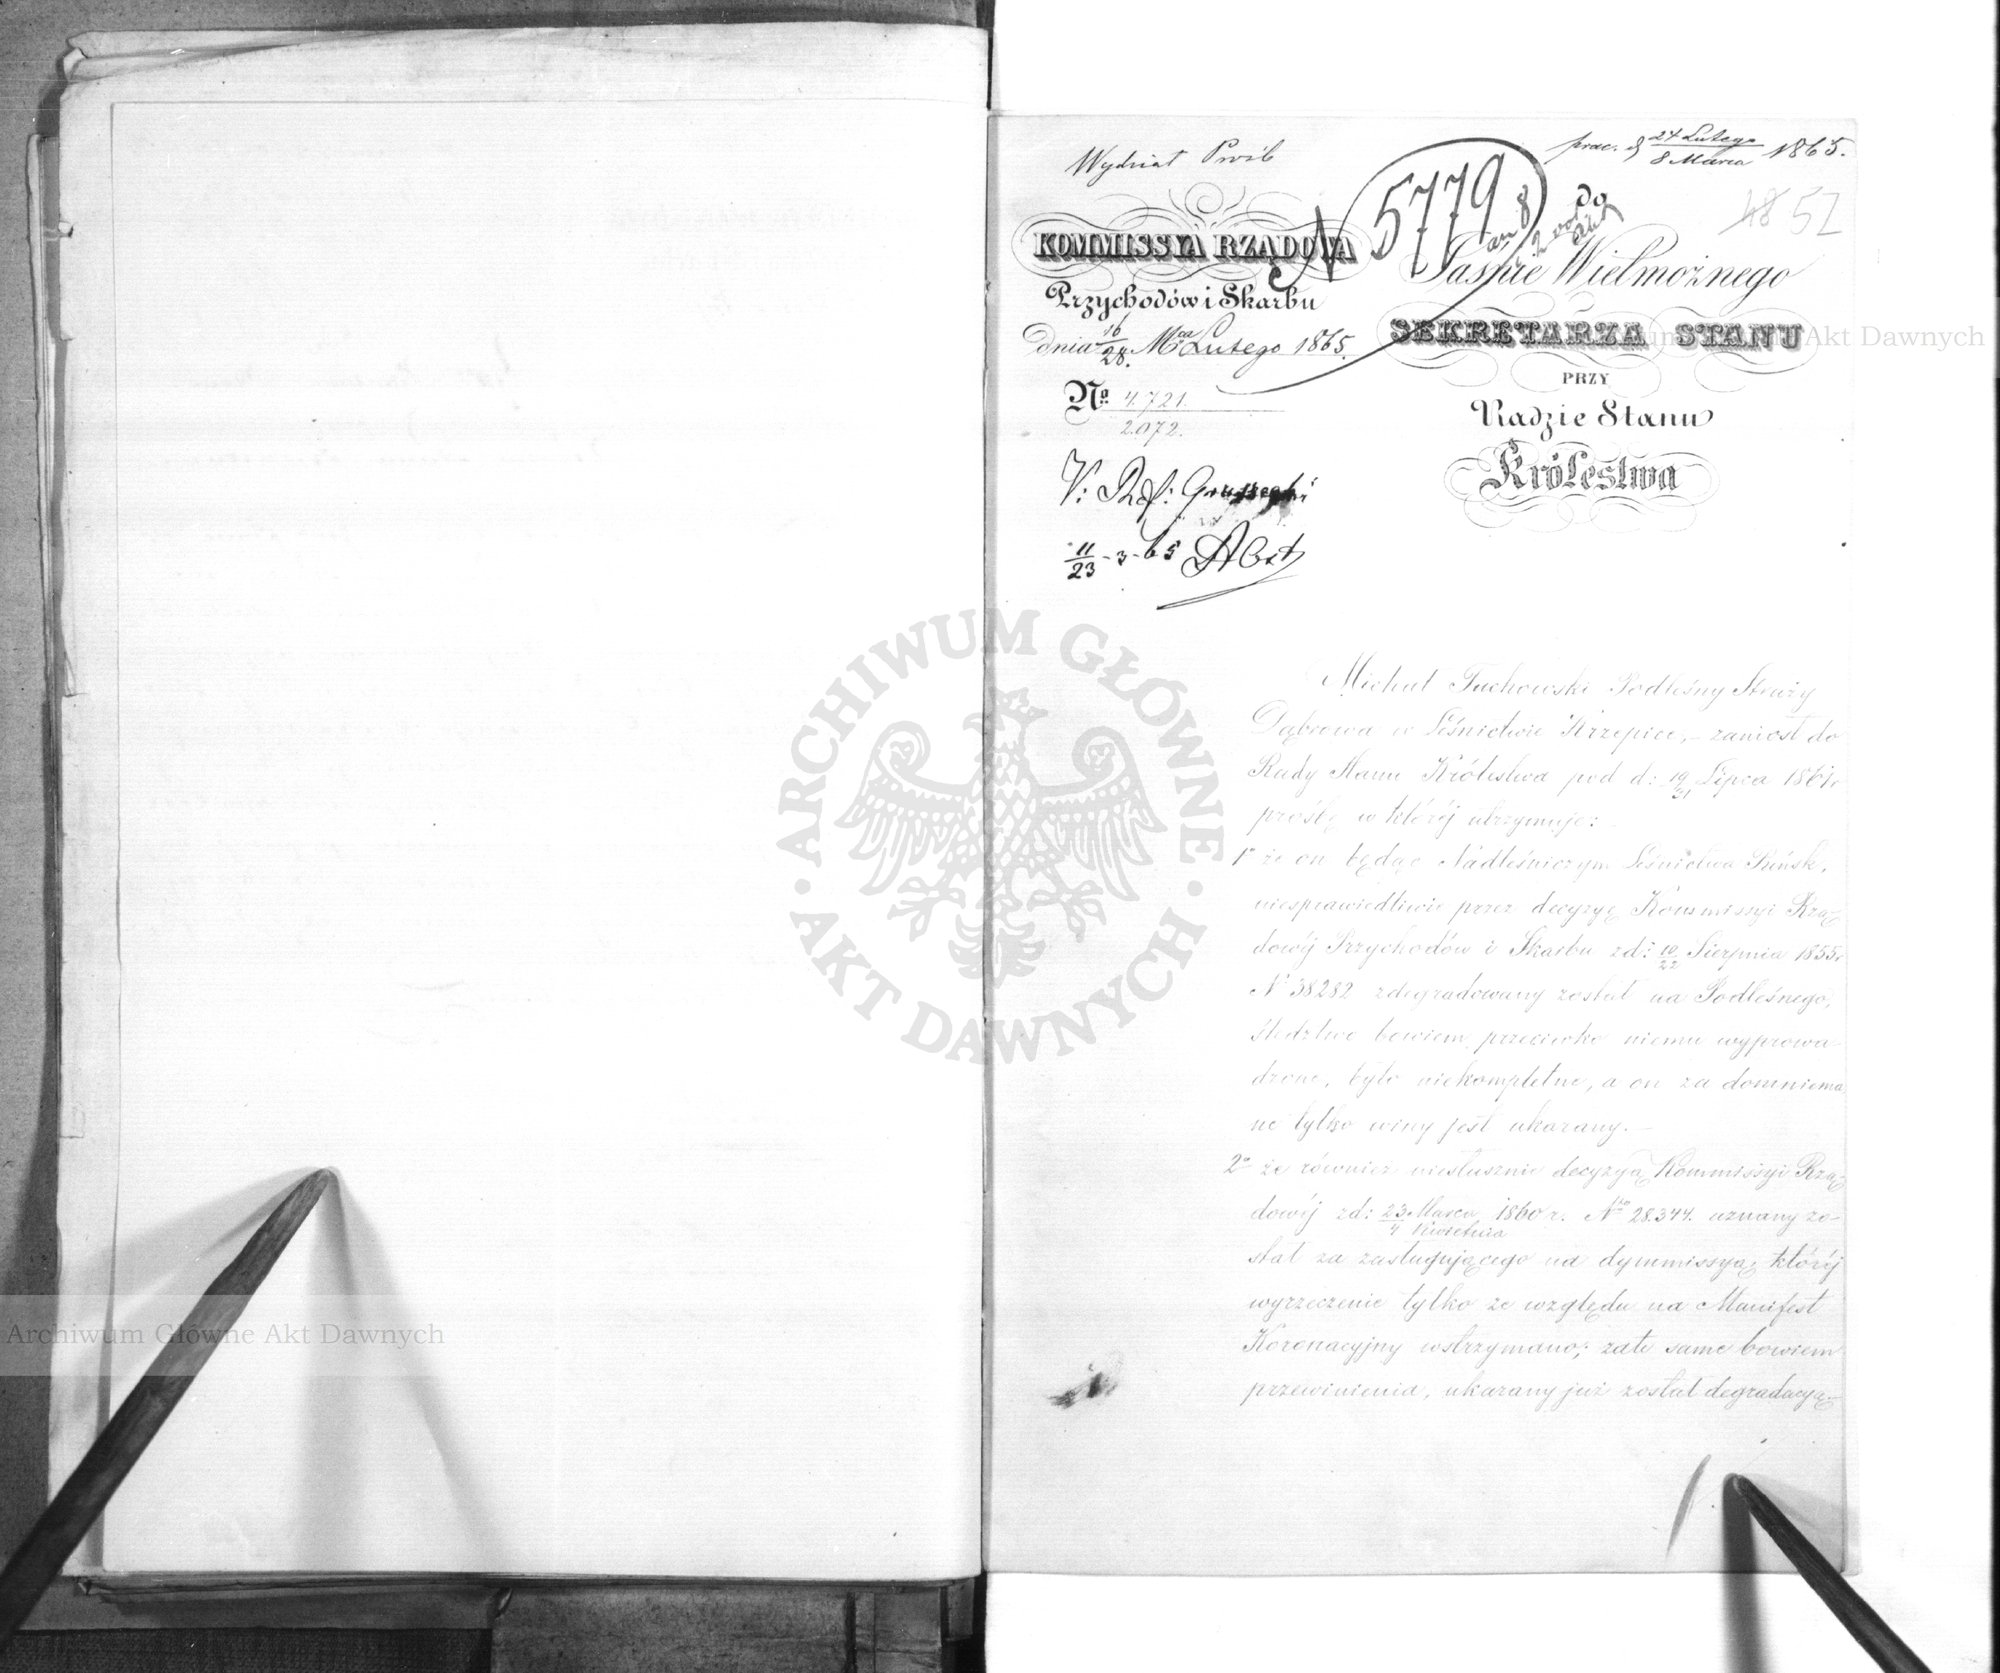 Wydział Prób
prae. d 24 Lutego 1865.
8 Marca
48 52
5779
KOMMISSYA RZĄDOWA
Przychodów i Skarbu
dnia 16/28 Mca Lutego 1865.
No 4.721.
2.072.
V: Ref:
11/23 - 3 - 65
do
Jaśnie Wielmożnego
SEKRETARZA STANU
PRZY
Radzie Stanu
Królestwa
Michał Tuchowski Podleśny Straży
Dąbrowa w Leśnictwie Krzepice, – zaniosł do
Rady Stanu Królestwa pod d: 19/31 Lipca 1861r
prośbę w którój utrzymuje:
1o że on będąc Nadleśniczym Leśnictwa
niesprawiedliwie przez decyzyę Kommissyi Rzą-
dowój Przychodów i Skarbu z d: 10/22 Sierpnia 1855r
N 38282 zdegradowany został na Podleśnego,
śledztwo bowiem przeciwko niemu wyprowa-
dzone, było niekompletne, a on za domniema-
ne tylko winy jest ukarany. –
2o że również niesłusznie decyzyą Kommissyi Rzą-
dowój z d: 23 Marca 1860 r. No 28.344. uznany zo-
4 Kwietnia
stał za zasługującego na dymmissyą, którój
wyrzeczenie tylko ze względu na Manifest
Koronacyjny wstrzymano; za te same bowiem
przewinienia, ukarany już został degradacyą
ARCHIWUM GŁÓWNE
AKT DAWNYCH
Archiwum Główne Akt Dawnych
Akt Dawnych